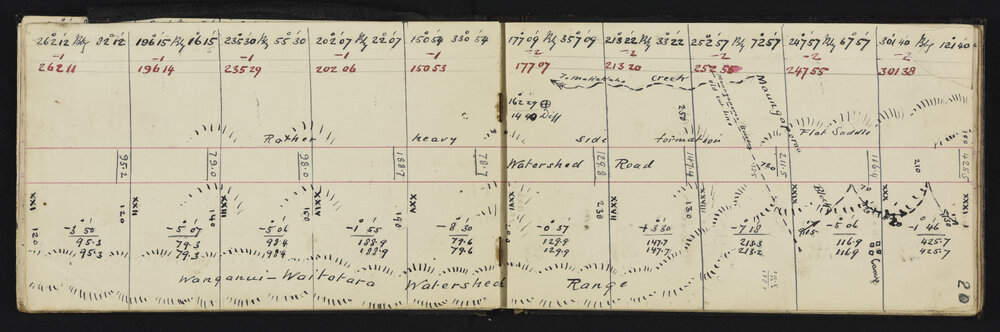 262 12 Bk 82 12 196 15 Bk 16 15 235 30 Bk 55 30 202 07 Bk 22 07 150 54 Bk 330 54 177 09 Bk 357 09 213 22 Bk 33 22 252 57 Bk 72 57 247 57 Bk 67 57 301 40 Bk 121 40
-1 -1 -1 -1 -1 -2 -2 -2 -2 -2
262 11 196 14 235 29 202 06 150 53 177 07 213 20 252 55 247 55 301 38
Creek
162 29
14 40 Diff
250
Rather heavy side formation Flat Saddle
100
Watershed Road
95.2 79.0 98.0 188.7 78.7 129.8 147.4 211.5 116.4 210 425.5
XXI XXII XXIII XXIV XXV XXVI XXVII XXXI
120 120 140 150 190 200 230 130
-3 50 -5 07 -5 06 -1 55 -8 30 -0 37 +3 30 -7 18 -5 06 -1 46
95.3 79.3 98.4 188.9 79.6 129.9 147.7 213.3 116.9 425.7
95.3 79.3 98.4 188.9 79.6 129.9 147.7 213.2 116.9 425.7
Block
Wanganui-Waitotara Watershed Range
20